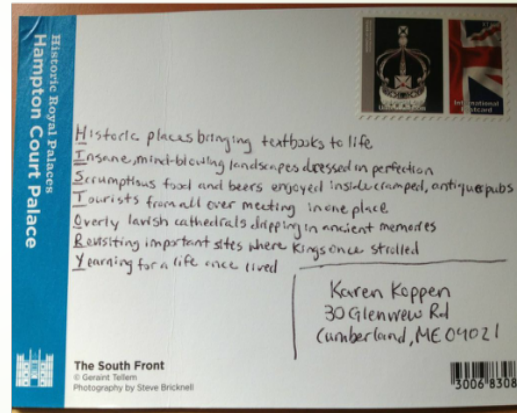 Historic Royal Palaces
Hampton Court Palace
International
Postcard
Historic places bringing textbooks to life
Insane, mind-blowing landscapes dressed in perfection
Scrumptious food and beers enjoyed inside cramped, antique pubs
Tourists from all over meeting in one place
Overly lavish cathedrals dripping in ancient memories
Revisiting important sites where Kings once strolled
Yearning for a life once lived
Karen Koppen
30 Glenview Rd
Cumberland, ME 04021
The South Front
© Geraint Tellem
Photography by Steve Bricknell
3006 8308